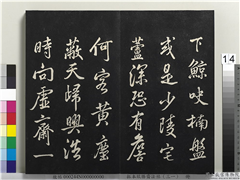 下鯨吹楠盤
或是少陵宅
深恐有
何黃塵
蔽天歸興浩
時向虛齋一
14